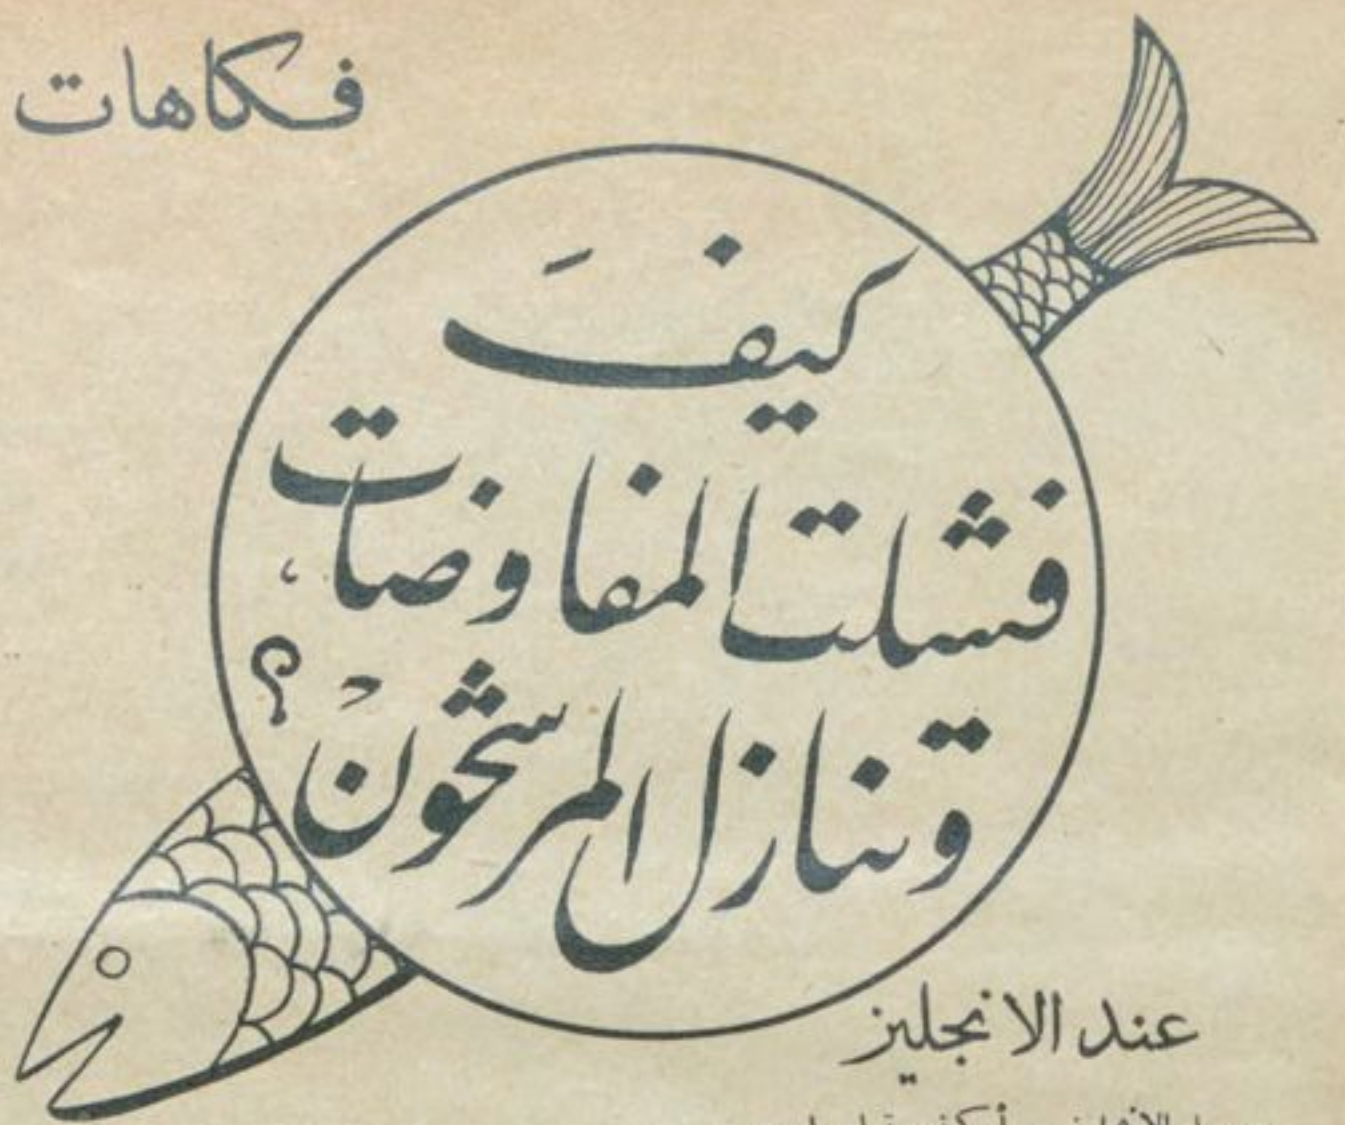 فكاهات
كيفَ
فشلت المفاوضات
وتنازل المرشحون؟
عند الانجليز